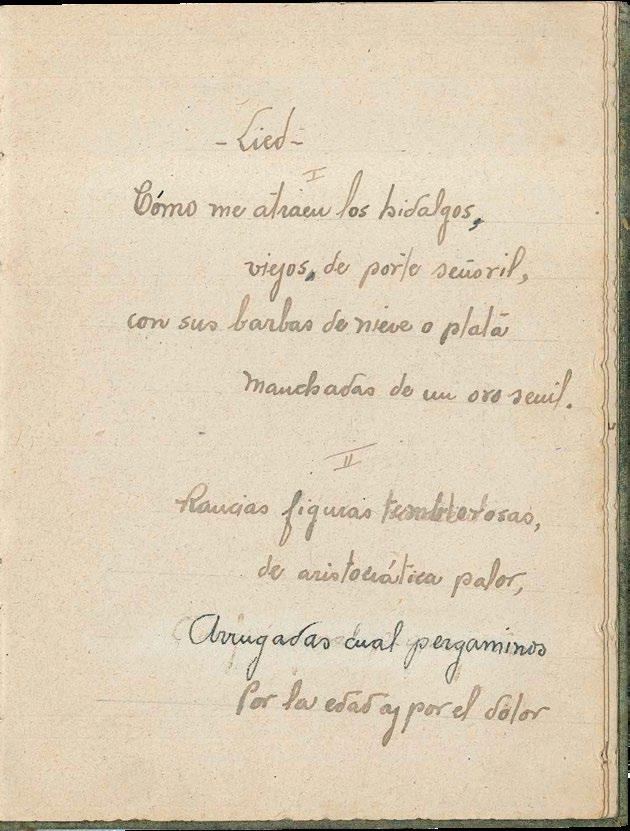 - Lied -
I
Cómo me atraen los hidalgos,
viejos, de porte señoril,
con sus barbas de nieve o plata
manchadas de un oro senil.
II
Rancias figuras temblorosas,
de aristocrática palor,
Arrugadas cual pergaminos
Por la edad y por el dolor